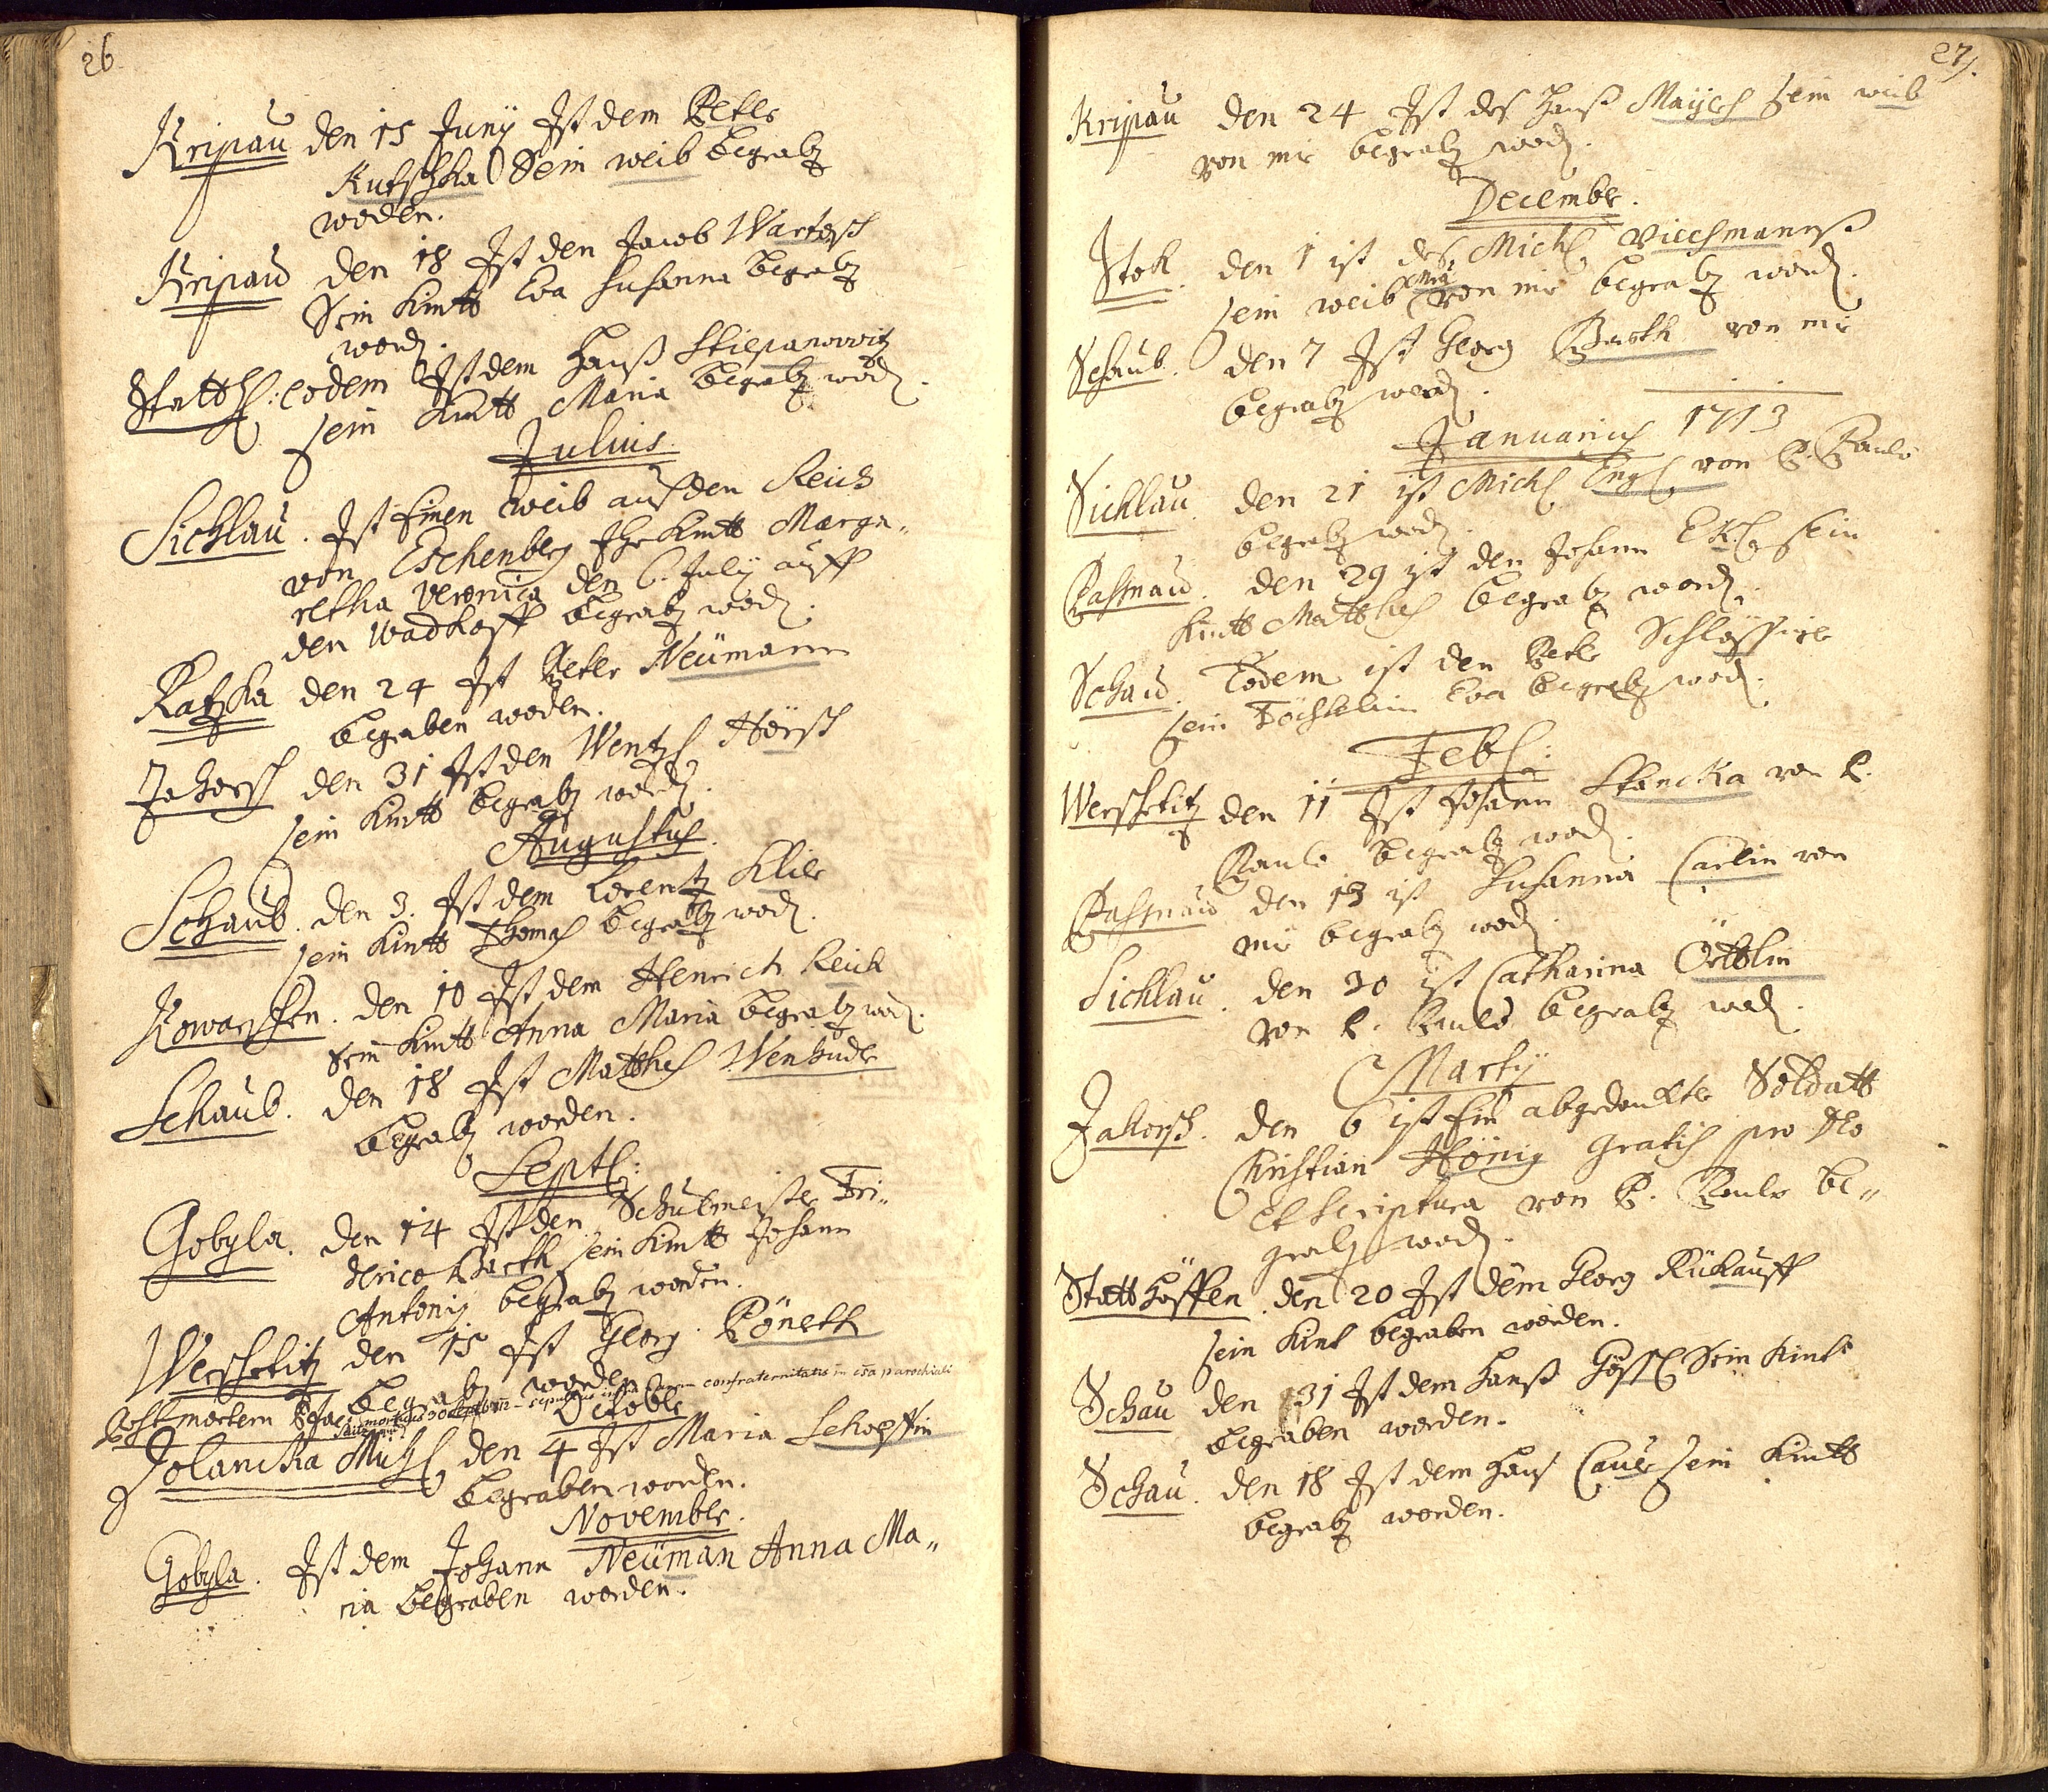 26
Kripau den 15 Junÿ Ist dem Peter
Kutschka Sein weib begrab
worden.
Kripau den 18 Ist den Jacob Wartesch
Sein Kintt Eva Susanna begrab
word.
Statth: eodem Ist dem Hanß Stiepanowitz
sein Kintt Maria begrab word.
Julius
Sichlau. Ist Einen weib aus den Reich
von Eschenberg Ihr Kintt Marga„
retha Veronica den 6. July auff
den wadhoff begrab word.
Ratzka den 24 Ist Peter Neümann
begraben worden.
Jakorsch den 31 Ist den Wentzl Hörsch
sein Kintt begrab word.
Augustus.
Schaub. den 3. Ist dem Lorentz Klier
sein Kintt Thomas begrab word.
Kowarschen. den 10 Ist dem Henrich Reich
Sein Kintt Anna Maria begrab word.
Schaub. den 18 Ist Matthes Wenhuder
begrab worden.
Septl:
Gobyla. den 14 Ist den Schulmeister Fri„
derico Barth sein Kintt Johann
Antonij begrab worden.
Werschetitz den 15 Ist Georg Pönerth
begrab worden
Post mortem confraternitatis in parochiali
Octobr
Jolancka Mühl den 4 Ist Maria Schopffin
begraben worden.
Novembr.
Gobyla. Ist dem Johann Neüman Anna Ma„
ria begraben worden.
27.
Kripau den 24 Ist des Hanß Mayer sein weib
von mir begrab word.
Decembr.
Stok. den 1 ist des Michl Viechmannß
sein weib von mir begrab word.
Schaub. den 7 Ist Georg Barth von mir
begrab word.
Januarius 1713
Sichlau. den 21 ist Michl Engl von P. Paulo
begrab word.
Passnau. den 29 ist den Johann Ekl sein
Kintt Matthes begrab word.
Schau. Eodem ist den Peter Schlössirer
sein Töchterlein Eva begrab word.
Febl:
Werschetitz den 11 Ist Johann Stancka von P.
Paulo begrab word.
Passnau den 13 ist Susanna Carlin von
mir begrab word.
Sichlau. den 20 ist Catharina Örttlin
von P. Paulo begrab word.
Martÿ
Jakorsch. den 6 ist Ein abgedankter Soldatt
Christian Hönig gratis pro Deo
Et scriptura von P. Paulo be„
grab word.
Statthöffen. den 20 Ist dem Georg Rükauff
sein Kint begraben worden.
Schau den 31 Ist dem Hanß Gössl Sein Kint
begraben worden.
Schau. den 18 Ist dem Hans Cauer sein Kintt
begrab worden.